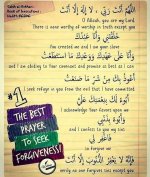 اللَّهُمَّ أَنْتَ رَبِّي لَا إِلَهَ إِلَّا أَنْتَ
O Allaah, you are my Lord
There is none worthy of worship in truth except you
خَلَقْتَنِي وَأَنَا عَبْدُكَ
You created me and I am your slave
وَأَنَا عَلَى عَهْدِكَ وَوَعْدِكَ مَا اسْتَطَعْتُ
and I am abiding to your covenant and promise as best as I can
أَعُوذُ بِكَ مِنْ شَرِّ مَا صَنَعْتُ
I seek refuge in you from the evil that I have committed
#1
THE BEST
PRAYER
TO SEEK
FORGIVENESS!
أَبُوءُ لَكَ بِنِعْمَتِكَ عَلَيَّ
I acknowledge Your favors upon me
and I confess to you my sins
فَإِنَّهُ لَا يَغْفِرُ الذُّنُوبَ إِلَّا أَنْتَ
verily no one forgives sins except you